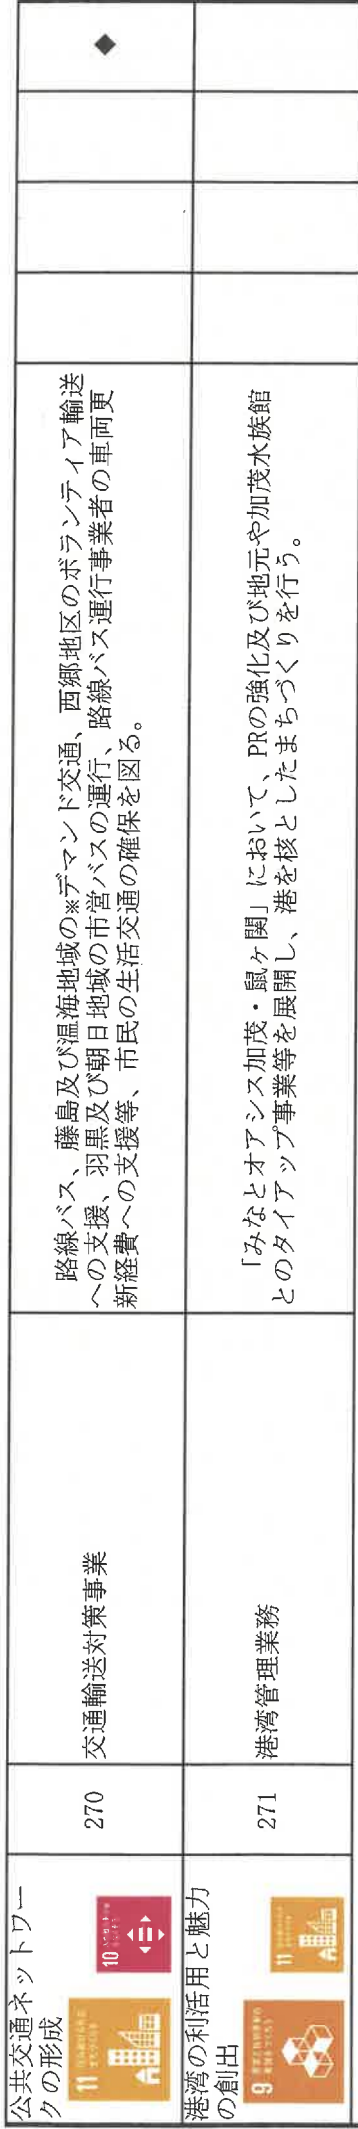 公共交通ネットワー
クの形成
11
10
270
交通輸送対策事業
路線バス、藤島及び温海地域の※デマンド交通、西郷地区のボランティア輸送
への支援、羽黒及び朝日地域の市営バスの運行、路線バス運行事業者の車両更
新経費への支援等、市民の生活交通の確保を図る。
◆
港湾の利活用と魅力
の創出
9
11
271
港湾管理業務
「みなとオアシス加茂・鼠ヶ関」において、PRの強化及び地元や加茂水族館
とのタイアップ事業等を展開し、港を核としたまちづくりを行う。